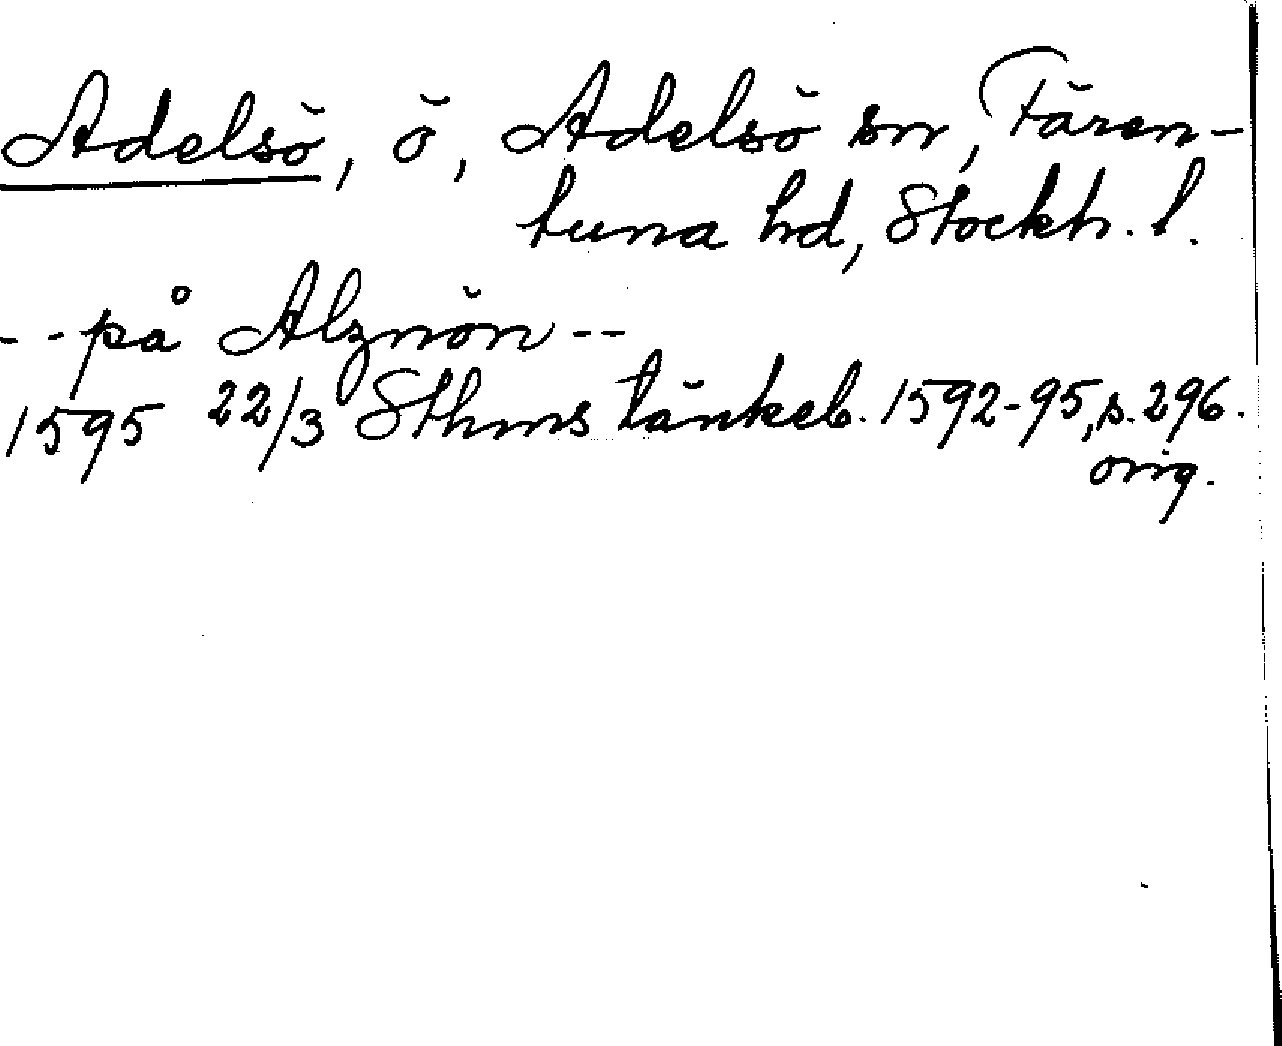 Adelsö, ö, Adelsö sn, Fären-
tuna hd, Stockh. l.
- - på Alznön - -
1595 22/3 Sthms tänkeb. 1592-95, s. 296.
orig.